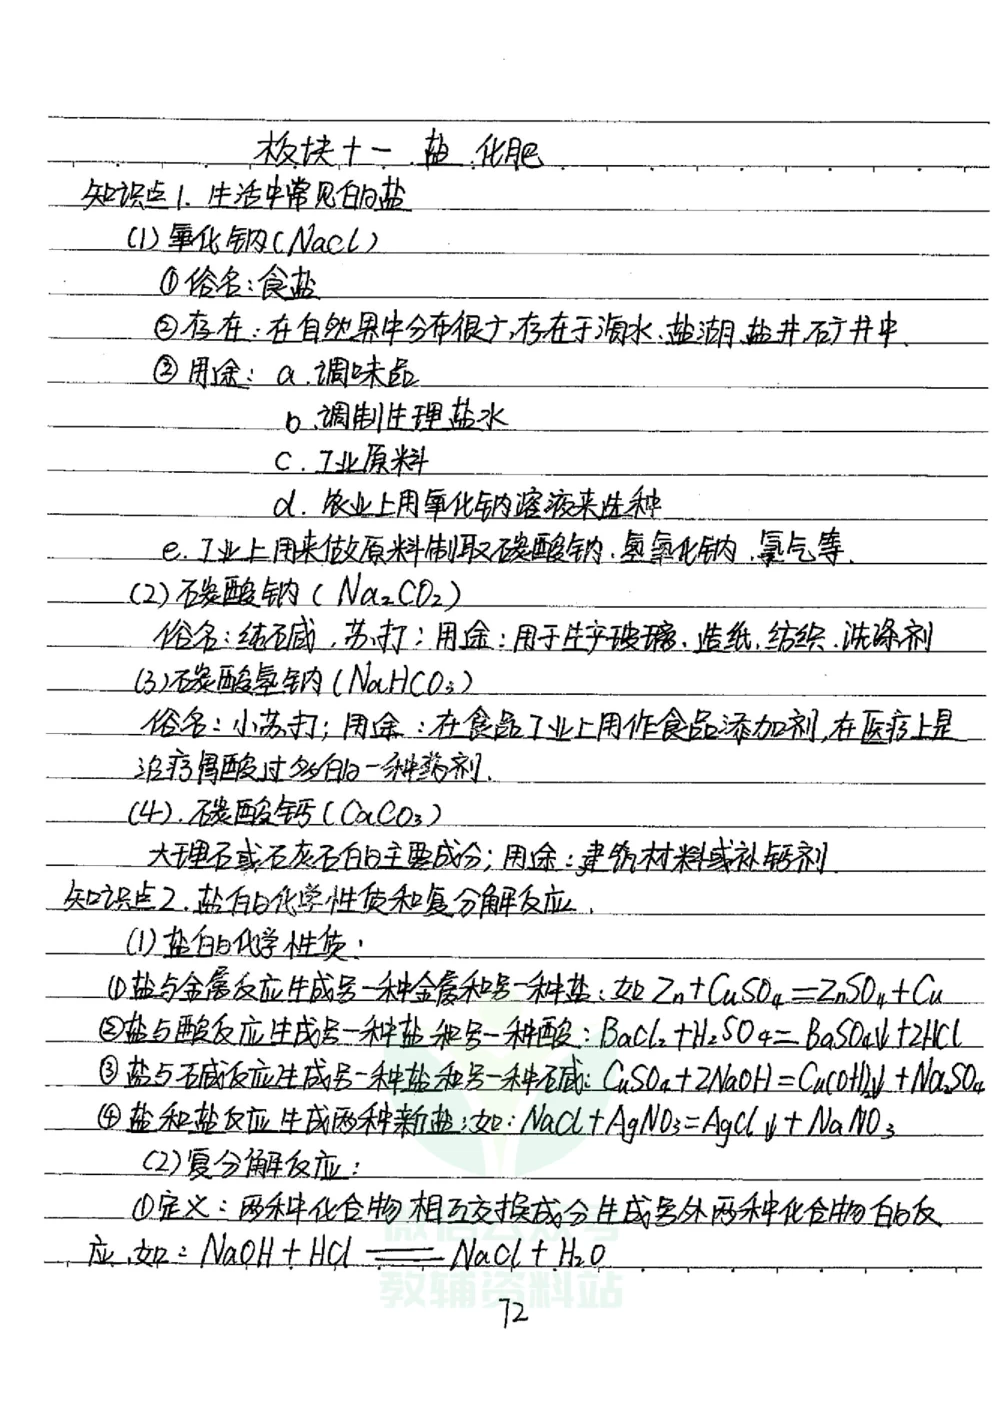 板块十一 盐 化肥
知识点1. 生活中常见的盐
(1) 氯化钠(NaCl)
①俗名:食盐
②存在:在自然界中分布很广,存在于海水、盐湖、盐井、矿井中.
③用途: a.调味品
b.调制生理盐水
c.工业原料
d.农业上用氯化钠溶液来选种
e.工业上用来做原料制取碳酸钠、氢氧化钠、氯气等.
(2) 碳酸钠(Na₂CO₂)
俗名:纯碱,苏打;用途:用于生产玻璃、造纸、纺织、洗涤剂
(3) 碳酸氢钠(NaHCO₃)
俗名:小苏打;用途:在食品工业上用作食品添加剂,在医疗上是
治疗胃酸过多的一种药剂.
(4).碳酸钙(CaCO₃)
大理石或石灰石的主要成分;用途:建筑材料或补钙剂.
知识点2.盐的化学性质和复分解反应.
(1) 盐的化学性质:
①盐与金属反应生成另一种金属和另一种盐:如Zn+CuSO₄=ZnSO₄+Cu
②盐与酸反应生成另一种盐和另一种酸:BaCl₂+H₂SO₄=BaSO₄↓+2HCl
③盐与碱反应生成另一种盐和另一种碱:CuSO₄+2NaOH=Cu(OH)₂↓+Na₂SO₄
④盐和盐反应生成两种新盐;如:NaCl+AgNO₃=AgCl↓+NaNO₃
(2)复分解反应:
①定义:两种化合物相互交换成分生成另外两种化合物的反
应,如:NaOH+HCl══NaCl+H₂O
微信公众号
教辅资料站
72